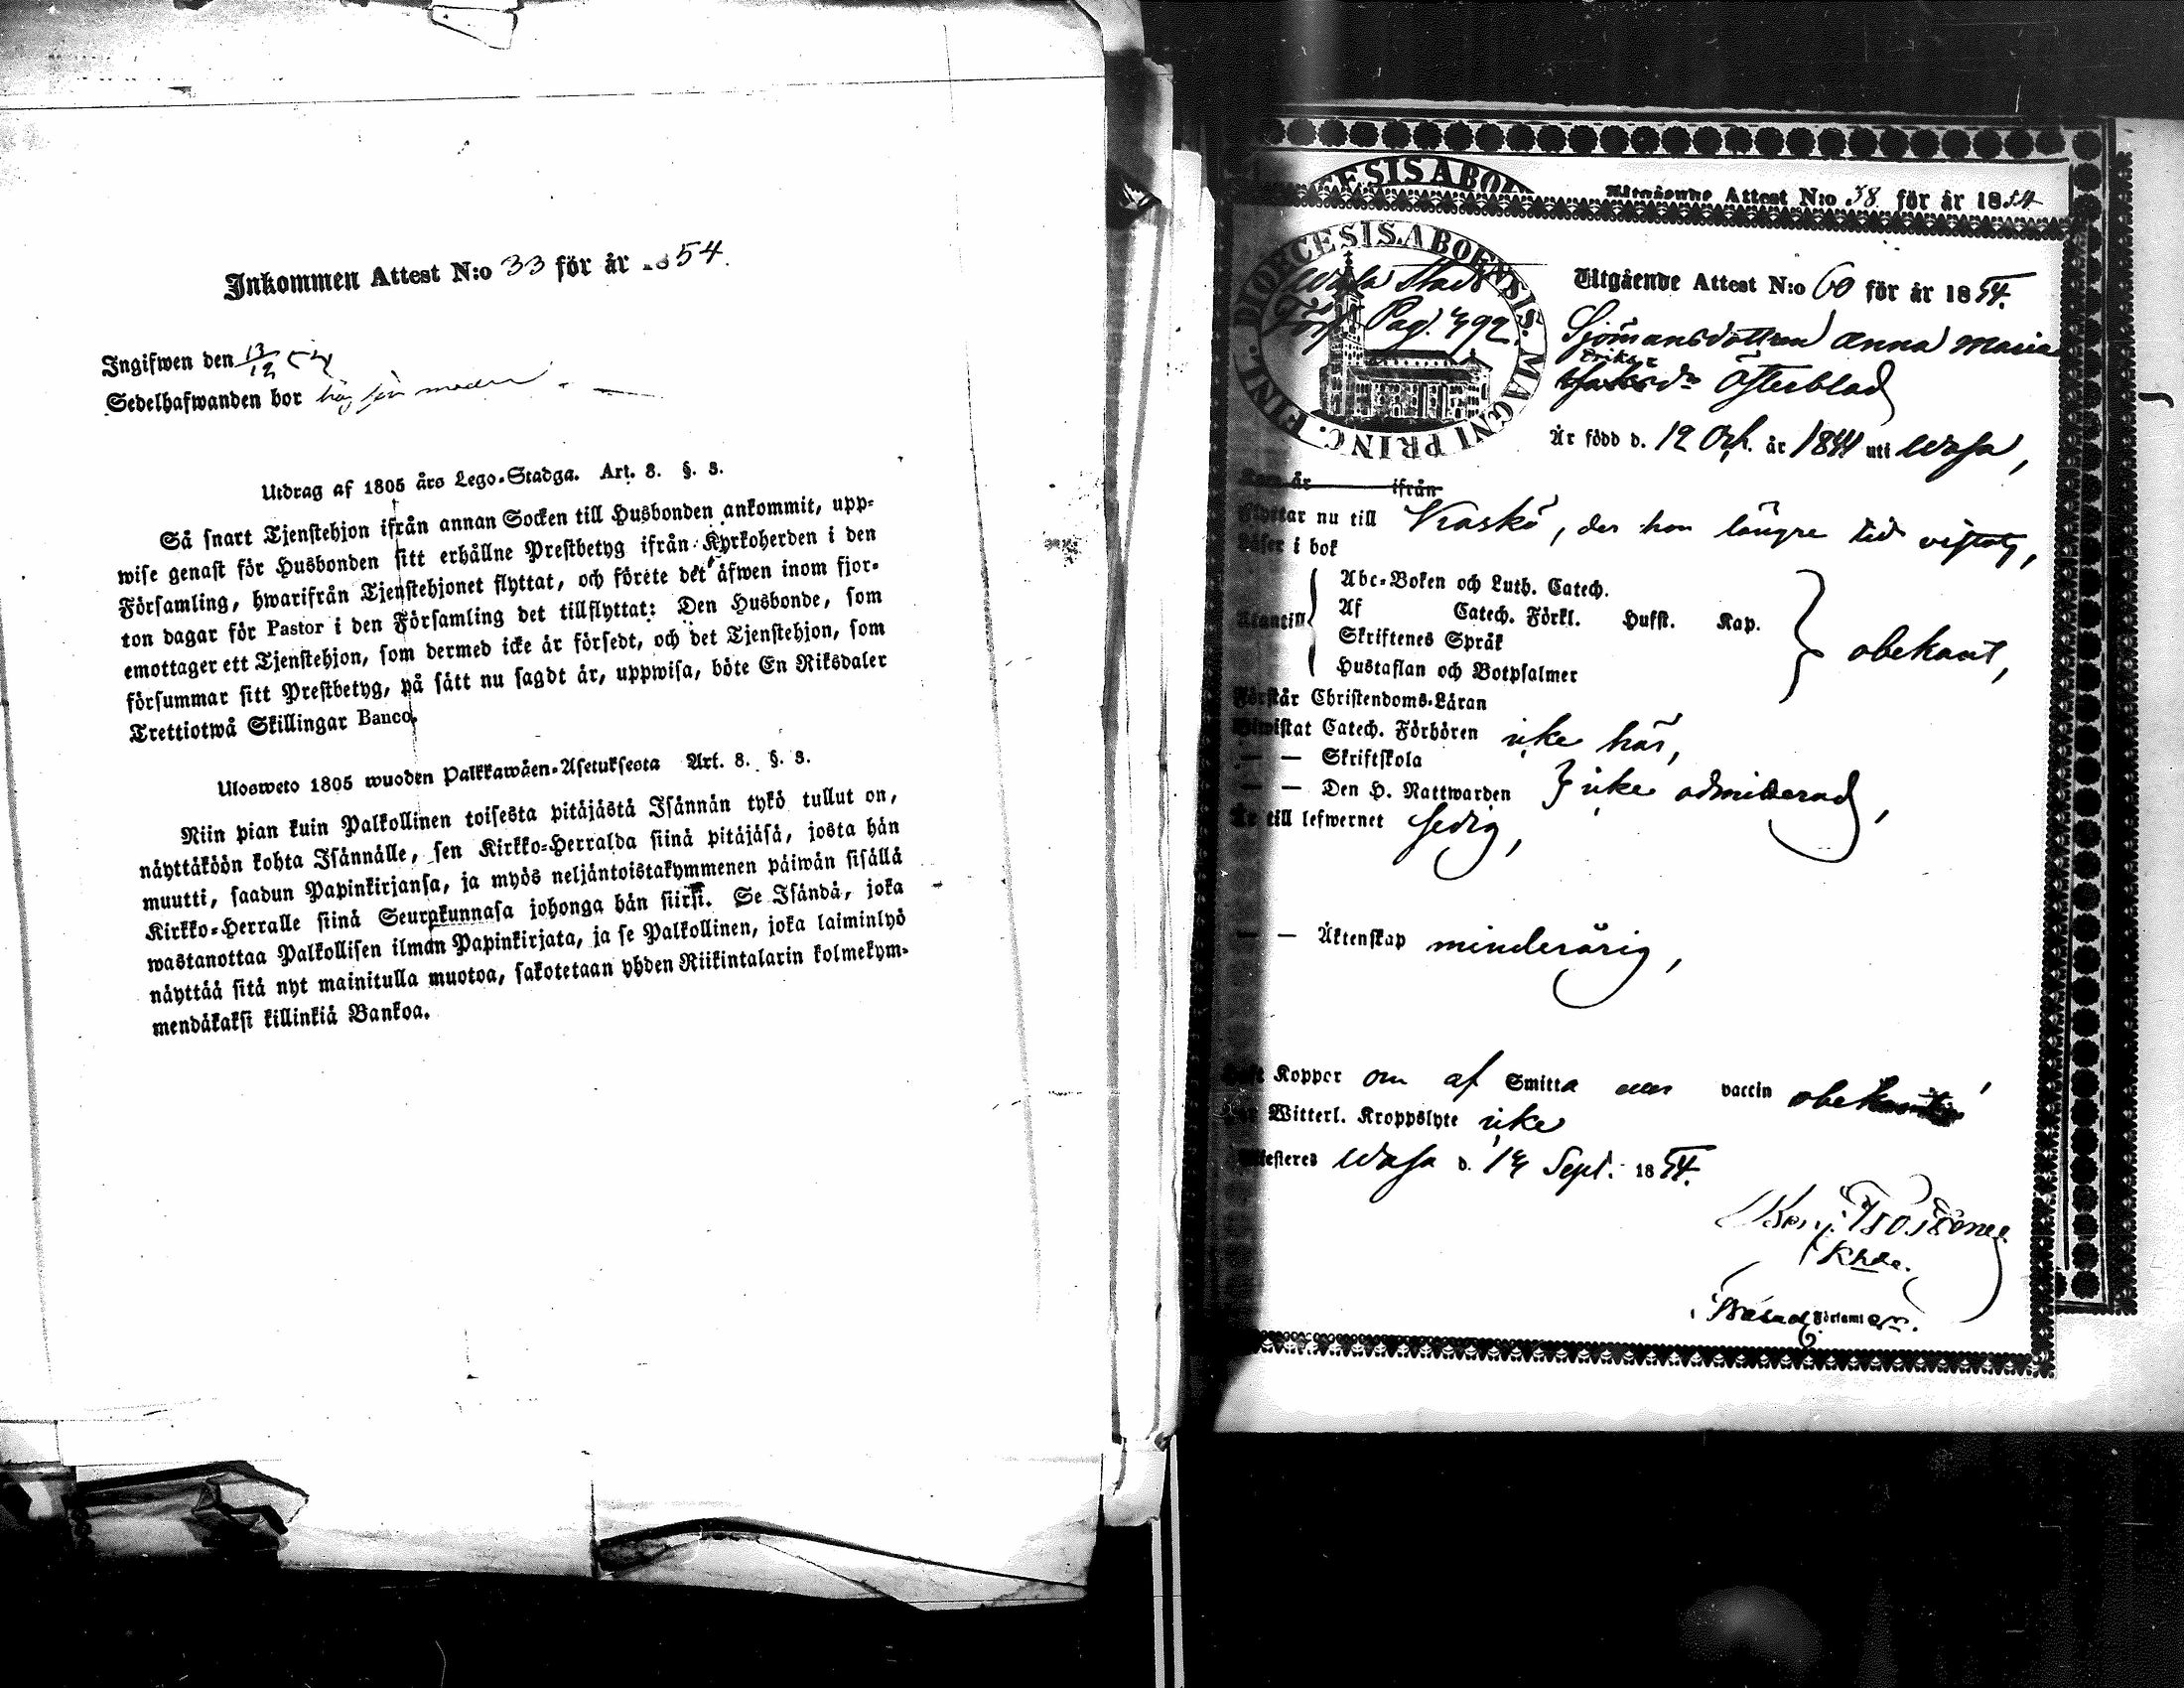 Inkommen Attest N:o 33 för år 1854.
Ingifwen den 13/12 54
Sedelhafwanden bor hos sin moder. —
Utdrag af 1805 års Lego-Stadga. Art. 8. §. 3.
Så snart Tjenstehjon ifrån annan Socken till Husbonden ankommit, upp-
wise genast för Husbonden sitt erhållne Prestbetyg ifrån Kyrkoherden i den
Församling, hwarifrån Tjenstehjonet flyttat, och förete det äfwen inom fjor-
ton dagar för Pastor i den Församling det tillflyttat: Den Husbonde, som
emottager ett Tjenstehjon, som dermed icke är försedt, och det Tjenstehjon, som
försummar sitt Prestbetyg, på sätt nu sagdt är, uppwisa, böte En Riksdaler
Trettiotwå Skillingar Banco.
Ulosweto 1805 wuoden Palkkawäen-Asetuksesta Art. 8. §. 3.
Niin pian kuin Palkollinen toisesta pitäjästä Isännän tykö tullut on,
näyttäköön kohta Isännälle, sen Kirkko-Herralda siinä pitäjäsä, josta hän
muutti, saadun Papinkirjansa, ja myös neljäntoistakymmenen päiwän sisällä
Kirkko-Herralle siinä Seurakunnasa johonga hän siirsi. Se Isändä, joka
wastanottaa Palkollisen ilman Papinkirjata, ja se Palkollinen, joka laiminlyö
näyttää sitä nyt mainitulla muotoa, sakotetaan yhden Riikintalarin kolmekym-
mendäkaksi killinkiä Bankoa.
Utgående Attest N:o 38 för år 1854
DIOECESIS.ABOENSIS.MAGNI PRINC. FINL.
Wasa Stads
Förs. Pag. 492.
Utgående Attest N:o 60 för år 1854.
Sjömansdottren Anna Maria
Eriks
Österblad
Är född d. 12 Oct. år 1841 uti Wasa,
Kom år ifrån
Flyttar nu till Kaskö, der hon längre tid vistats,
Läser i bok
Utantill
Abc-Boken och Luth. Catech.
Af Catech. Förkl. Hufst. Kap.
Skriftenes Språk
Hustaflan och Botpsalmer
obekant,
Förstår Christendoms-Läran
Biwistat Catech. Förhören icke här,
— — Skriftskola
— — Den H. Nattwarden } icke admitterad,
Är till lefwernet sedig,
— — Äktenskap minderårig,
Haft Koppor om af Smitta eller vaccin obekant
Har Witterl. Kroppslyte icke
Attesteres Wasa d. 14 Sept. 1854.
Khde.